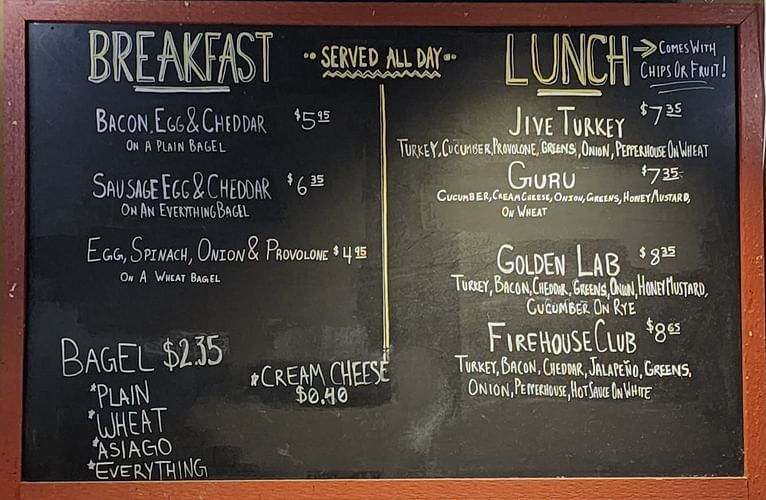 BREAKFAST
SERVED ALL DAY
BACON, EGG & CHEDDAR $5.95
ON A PLAIN BAGEL
SAUSAGE EGG & CHEDDAR $6.35
ON AN EVERYTHING BAGEL
EGG, SPINACH, ONION & PROVOLONE $4.95
ON A WHEAT BAGEL
BAGEL $2.35
*PLAIN
*WHEAT
*ASIAGO
*EVERYTHING
*CREAM CHEESE
$0.40
LUNCH → COMES WITH
CHIPS OR FRUIT!
JIVE TURKEY $7.35
TURKEY, CUCUMBER, PROVOLONE, GREENS, ONION, PEPPERHOUSE ON WHEAT
GURU $7.35
CUCUMBER, CREAM CHEESE, ONION, GREENS, HONEY MUSTARD,
ON WHEAT
GOLDEN LAB $8.35
TURKEY, BACON, CHEDDAR, GREENS, ONION, HONEY MUSTARD,
CUCUMBER ON RYE
FIREHOUSE CLUB $8.65
TURKEY, BACON, CHEDDAR, JALAPEÑO, GREENS,
ONION, PEPPERHOUSE, HOT SAUCE ON WHITE